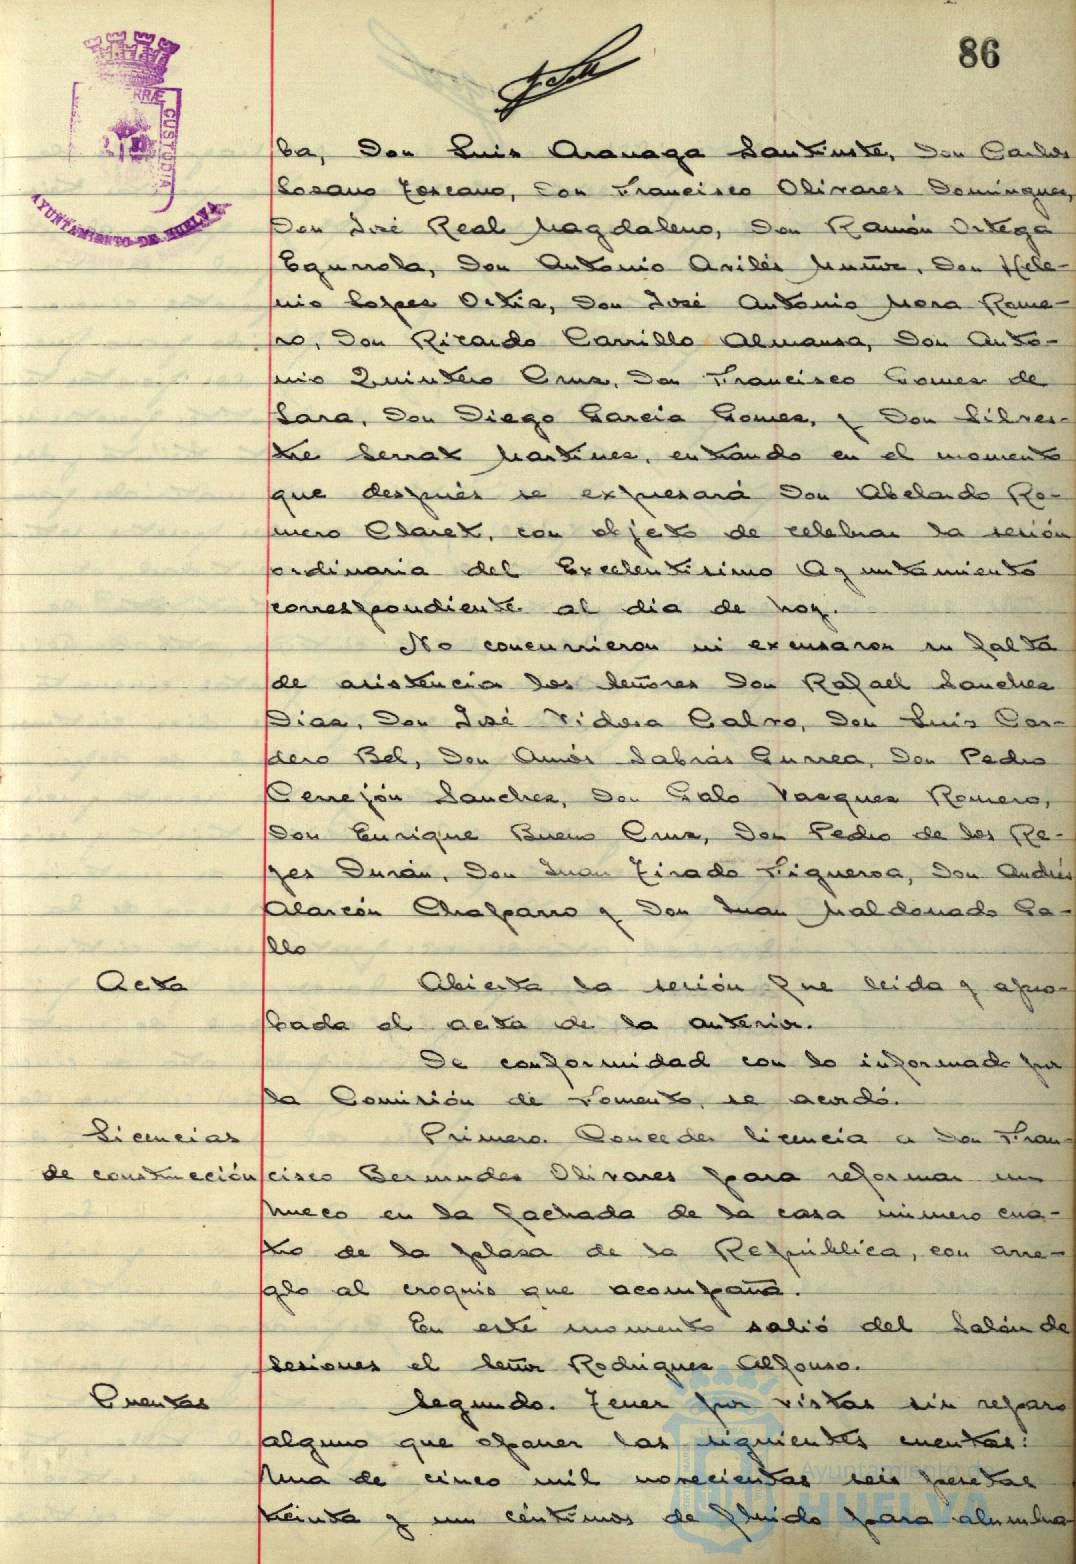 86
RRÆ CUSTODIA
AYUNTAMIENTO DE HUELVA
ba, Don Luis Aranaga Santiuste, Don Carlos
Lozano Toscano, Don Francisco Olivares Dominguez,
Don José Real Magdaleno, Don Ramón Ortega
Egurrola, Don Antonio Avilés Muñoz, Don Hele-
nio Lopez Ortiz, Don José Antonio Mora Rome-
ro, Don Ricardo Carrillo Almansa, Don Anto-
nio Quintero Cruz, Don Francisco Gomez de
Lara, Don Diego Garcia Gomez, y Don Silves-
tre Serrat Martinez, entrando en el momento
que después se expresará Don Abelardo Ro-
mero Claret, con objeto de celebrar la sesión
ordinaria del Excelentisimo Ayuntamiento
correspondiente al dia de hoy.
No concurrieron ni excusaron su falta
de asistencia los Señores Don Rafael Sanchez
Diaz, Don José Vidosa Calvo, Don Luis Cor-
dero Bel, Don Amós Sabrás Gurrea, Don Pedro
Cerrejón Sanchez, Don Galo Vazquez Romero,
Don Enrique Bueno Cruz, Don Pedro de los Re-
yes Durán, Don Juan Tirado Figueroa, Don Andrés
Alarcón Chaparro y Don Juan Maldonado Ga-
llo
Acta Abierta la sesión fue leida y apro-
bada el acta de la anterior.
De conformidad con lo informado por
la Comisión de Fomento, se acordó.
Licencias Primero. Conceder licencia a Don Fran-
de construcción cisco Bermudez Olivares para reformar un
hueco en la fachada de la casa número cua-
tro de la plaza de la República, con arre-
glo al croquis que acompaña.
En este momento salió del Salón de
Sesiones el Señor Rodriguez Alfonso.
Cuentas Segundo. Tener por vistas sin reparo
alguno que oponer las siguientes cuentas:
Una de cinco mil novecientas seis pesetas
treinta y un céntimos de fluido para alumbra-
Ayuntamiento de
HUELVA